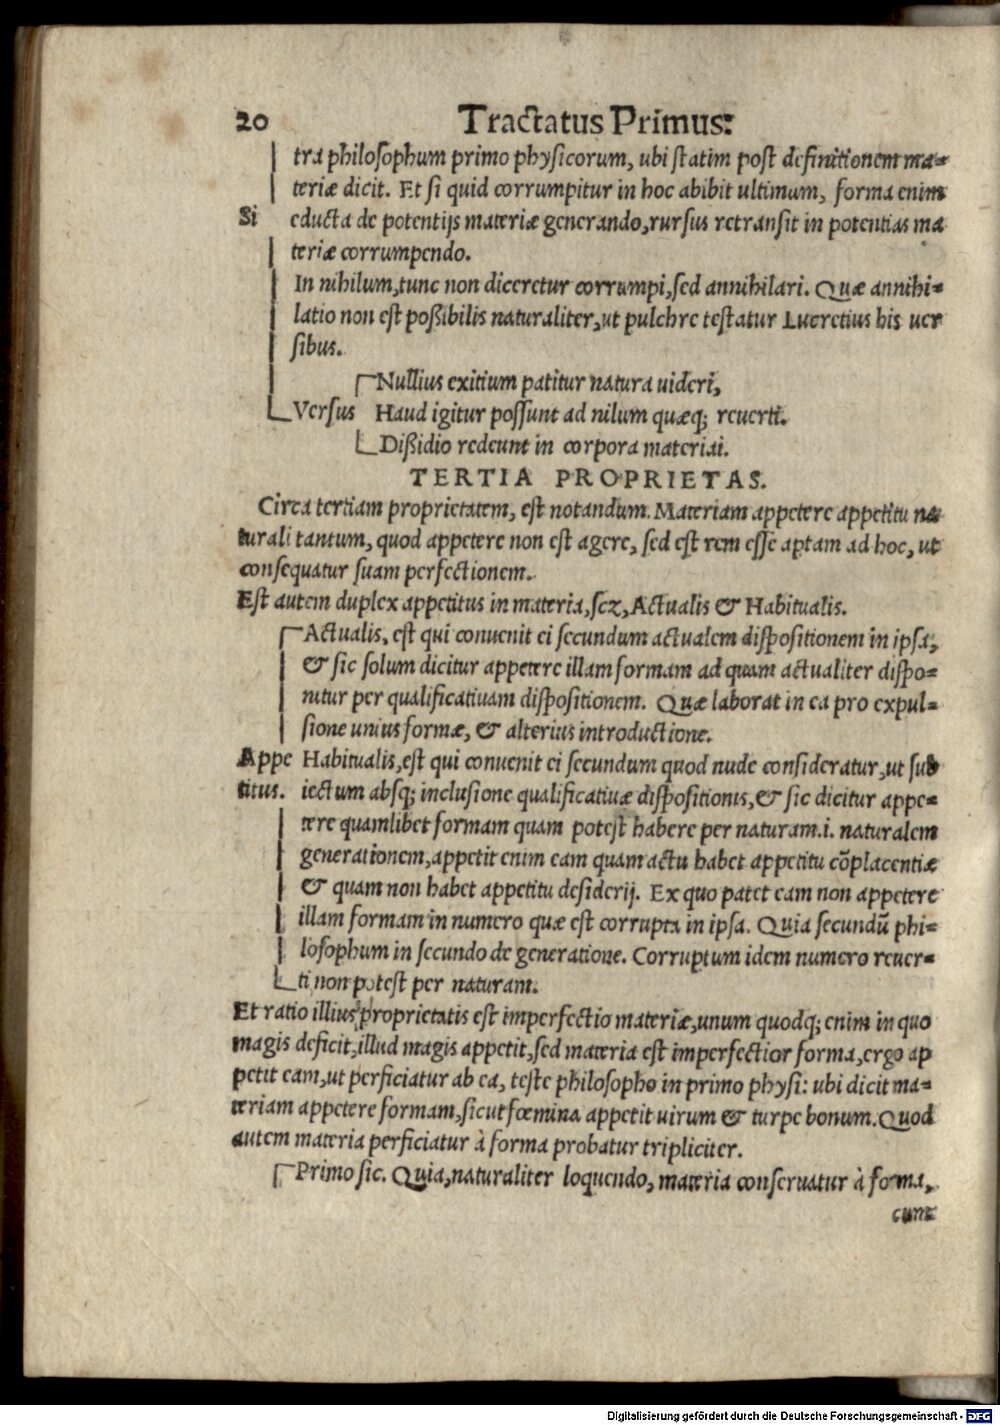 20 Tractatus Primus:
tra philosophum primo physicorum, ubi statim post definitionem ma-
teriæ dicit. Et si quid corrumpitur in hoc abibit ultimum, forma enim
Si educta de potentijs materiæ generando, rursus retransit in potentias ma
teriæ corrumpendo.
In nihilum, tunc non diceretur corrumpi, sed annihilari. Quæ annihi-
latio non est poßibilis naturaliter, ut pulchre testatur Lucretius his uer
sibus.
Nullius exitium patitur natura uideri,
Versus Haud igitur possunt ad nilum quæq; reuerti.
Dißidio redeunt in corpora materiai.
TERTIA PROPRIETAS.
Circa tertiam proprietatem, est notandum. Materiam appetere appetitu na
turali tantum, quod appetere non est agere, sed est rem esse aptam ad hoc, ut
consequatur suam perfectionem.
Est autem duplex appetitus in materia, scz, Actualis & Habitualis.
Actualis, est qui conuenit ei secundum actualem dispositionem in ipsa,
& sic solum dicitur appetere illam formam ad quam actualiter dispo-
nitur per qualificatiuam dispositionem. Quæ laborat in ea pro expul-
sione unius formæ, & alterius introductione.
Appe Habitualis, est qui conuenit ei secundum quod nude consideratur, ut sub
titus. iectum absq; inclusione qualificatiuæ dispositionis, & sic dicitur appe-
tere quamlibet formam quam potest habere per naturam .i. naturalem
generationem, appetit enim eam quam actu habet appetitu cõplacentiæ
& quam non habet appetitu desiderij. Ex quo patet eam non appetere
illam formam in numero quæ est corrupta in ipsa. Quia secundũ phi-
losophum in secundo de generatione. Corruptum idem numero reuer-
ti non potest per naturam.
Et ratio illius proprietatis est imperfectio materiæ, unum quodq; enim in quo
magis deficit, illud magis appetit, sed materia est imperfectior forma, ergo ap
petit eam, ut perficiatur ab ea, teste philosopho in primo physi: ubi dicit ma-
teriam appetere formam, sicut fœmina appetit uirum & turpe bonum. Quod
autem materia perficiatur à forma probatur tripliciter.
Primo sic. Quia, naturaliter loquendo, materia conseruatur à forma,
cum
Digitalisierung gefördert durch die Deutsche Forschungsgemeinschaft - DFG